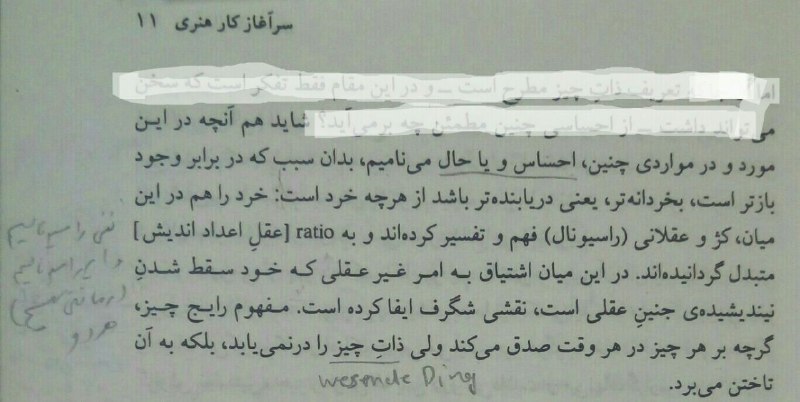 سرآغاز کار هنری ۱۱
اما تعریف ذاتِ چیز مطرح است ــ و در این مقام فقط تفکر است که سخن
می‌تواند داشت ــ از احساسی چنین مطمئن چه برمی‌آید؟ شاید هم آنچه در این
مورد و در مواردی چنین، احساس و یا حال می‌نامیم، بدان سبب که در برابر وجود
بازتر است، بخردانه‌تر، یعنی دریابنده‌تر باشد از هرچه خرد است: خرد را هم در این
میان، کژ و عقلانی (راسیونال) فهم و تفسیر کرده‌اند و به ratio [عقلِ اعداد اندیش]
متبدل گردانیده‌اند. در این میان اشتیاق به امر غیر عقلی که خود سقط شدنِ
نیندیشیده‌ی جنینِ عقلی است، نقشی شگرف ایفا کرده است. مفهوم رایج چیز،
گرچه بر هر چیز در هر وقت صدق می‌کند ولی ذاتِ چیز را درنمی‌یابد، بلکه به آن
تاختن می‌برد.
wesende Ding
هر دو